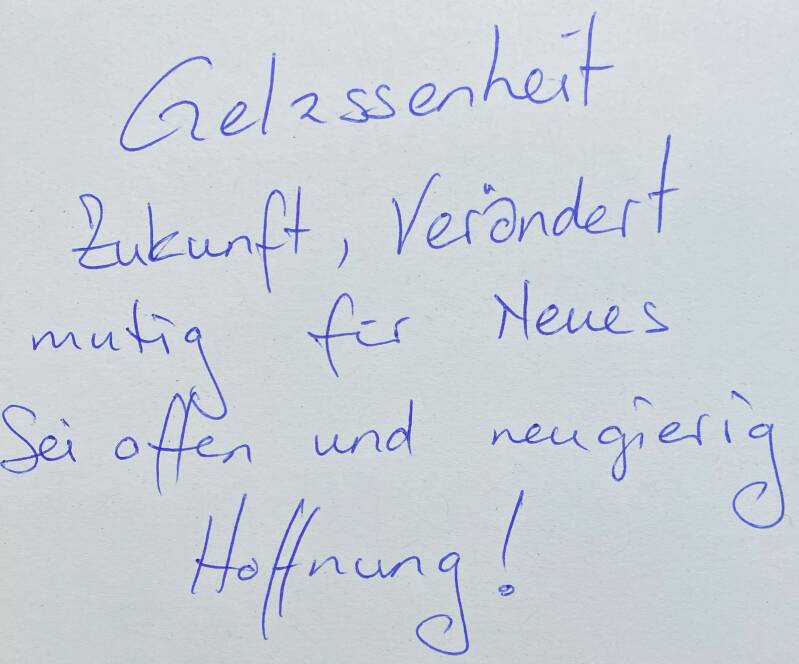 Gelassenheit
Zukunft, Verändert
mutig für Neues
Sei offen und neugierig
Hoffnung!